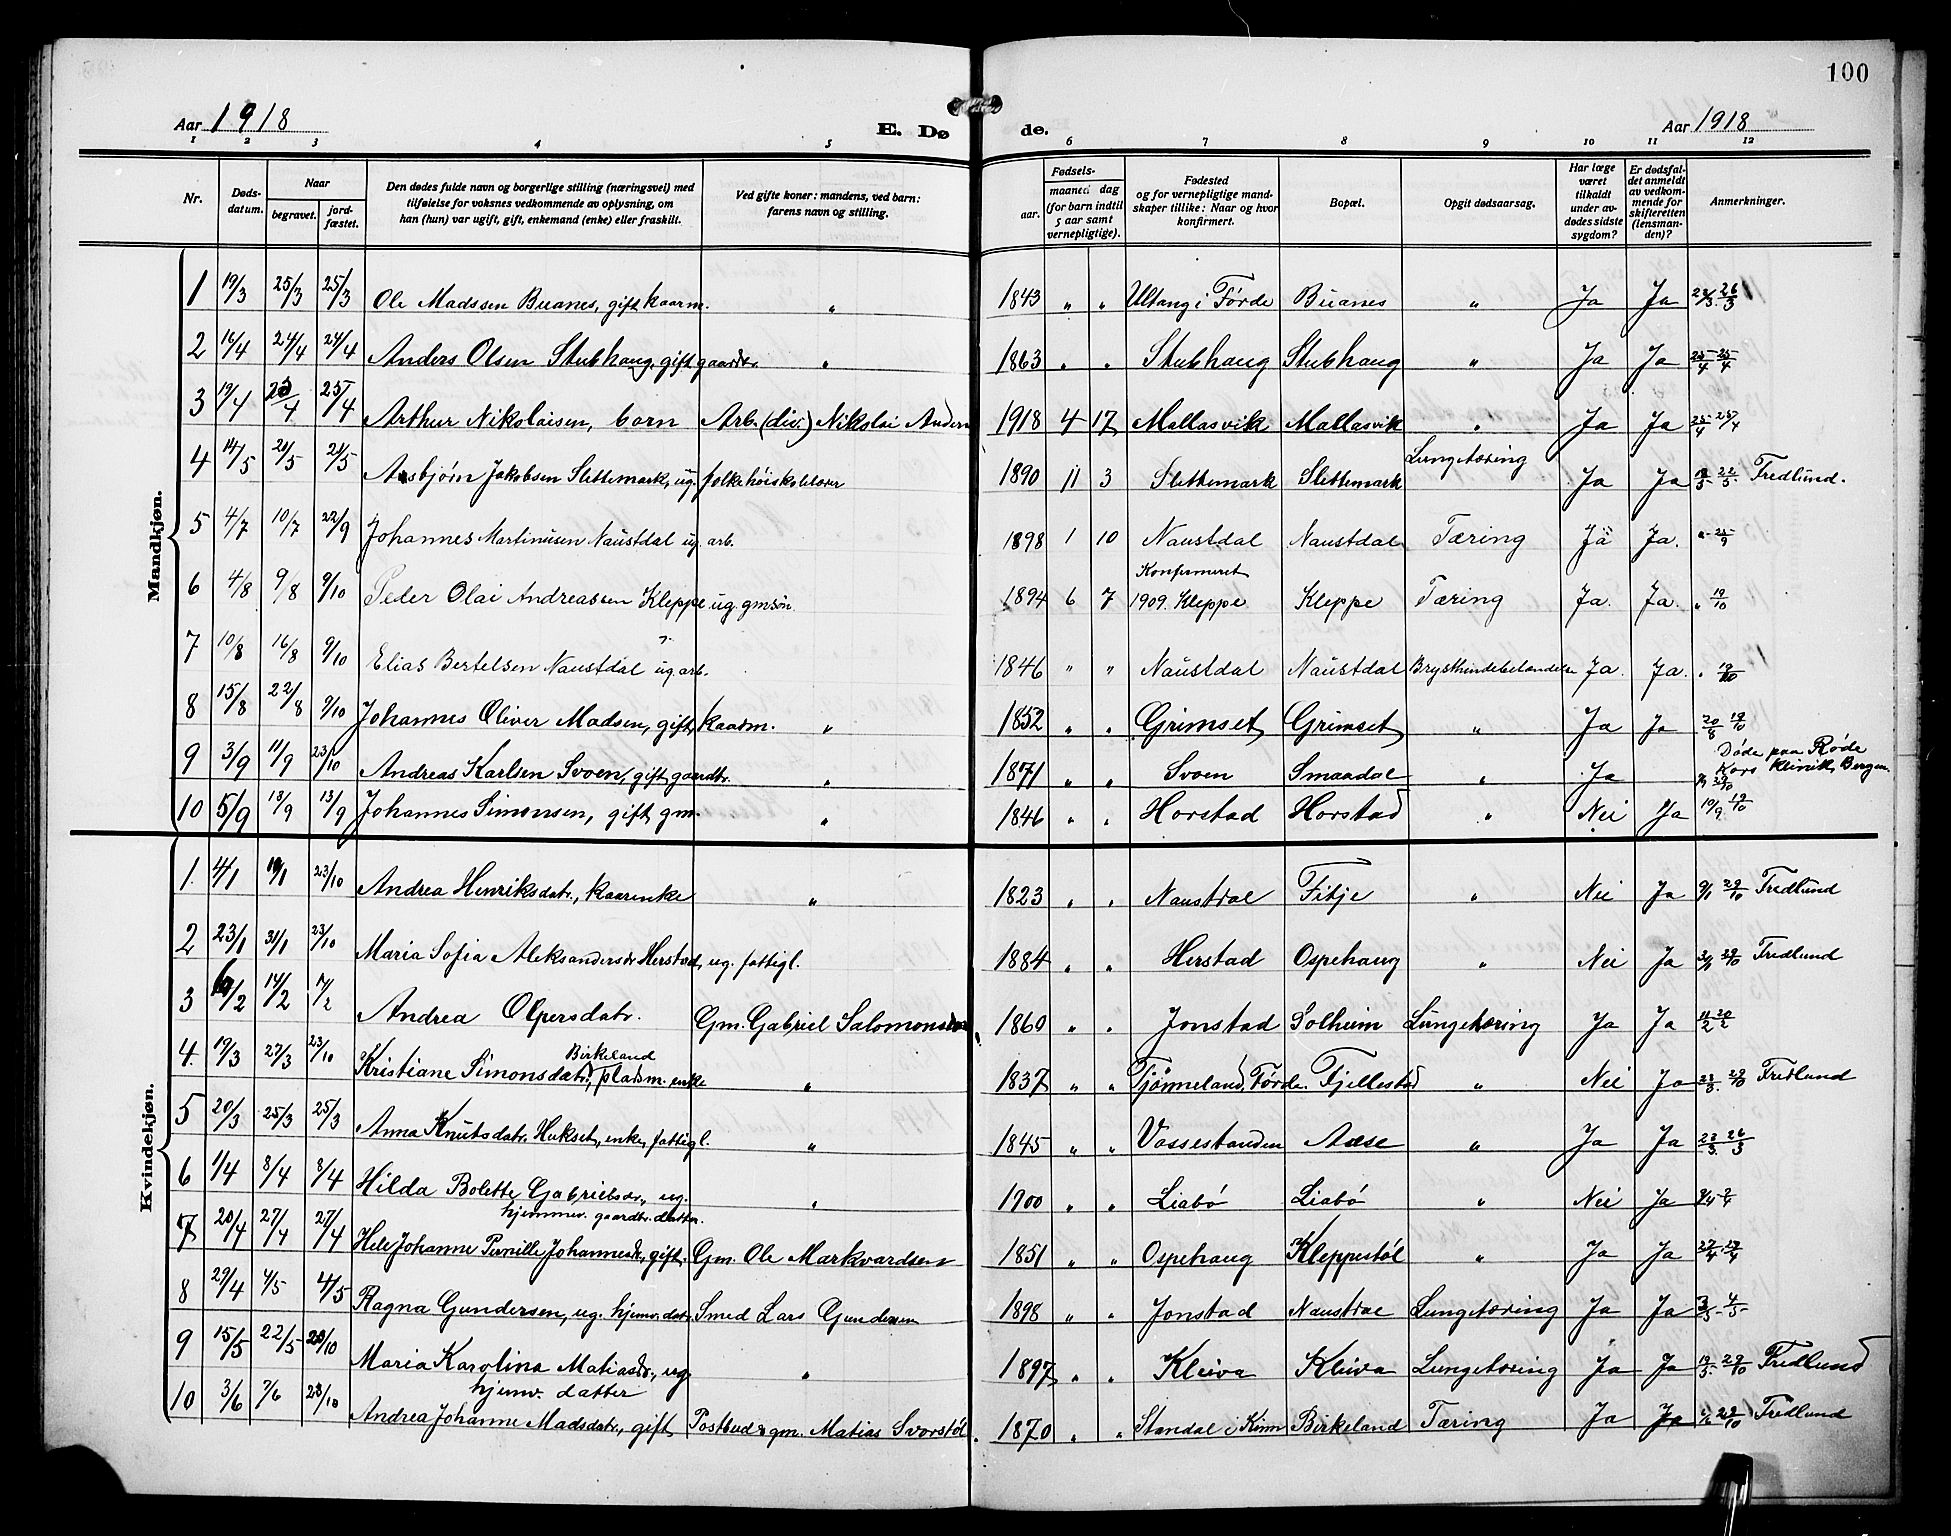 100
Aar 1918
E. Døde.
Aar 1918
1 2 3 4 5 6 7 8 9 10 11 12
Nr.
Døds-datum.
Naar
begravet.
jord-fæstet.
Den dødes fulde navn og borgerlige stilling (næringsvei) med
tilføielse for voksnes vedkommende av oplysning, om
han (hun) var ugift, gift, enkemand (enke) eller fraskilt.
Ved gifte koner: mandens, ved barn:
farens navn og stilling.
Fødsels-
aar.
maaned dag
(for barn indtil
5 aar samt
vernepligtige).
Fødested
og for vernepligtige mand-
skaper tillike: Naar og hvor
konfirmert.
Bopæl.
Opgit dødsaarsag.
Har læge
været
tilkaldt
under av-
dødes sidste
sygdom?
Er dødsfal-
det anmeldt
av vedkom-
mende for
skifteretten
(lensman-
den)?
Anmerkninger.
Mandkjøn.
1 19/3 25/3 25/3 Ole Madssen Buanes, gift kaarm. " 1843 " " Ultang i Førde Buanes " Ja Ja 22/3. 26/3
2 16/4 24/4 24/4 Anders Olsen Stubhaug, gift gaardbr. " 1863 " " Stubhaug Stubhaug " Ja Ja 25/4 25/4
3 19/4 25/4 25/4 Arthur Nikolaisen, barn Arb. (div.) Nikolai Andern 1918 4 17 Mallasvik Mallasvik " Ja Ja 25/4 25/4
4 14/5 21/5 21/5 Asbjørn Jakobsen Slettemark, ug. folkehøiskolelærer 1890 11 3 Slettemark Slettemark Lungetæring Ja Ja 18/5 22/5. Fredlund.
5 4/7 10/7 22/9 Johannes Martinusen Naustdal ug. arb. 1898 1 10 Naustdal Naustdal Tæring Ja Ja. " 25/9
6 4/8 9/8 9/10 Peder Olai Andreassen Kleppe ug. gmsøn. 1894 6 7 Konfirmeret 1909. Kleppe Kleppe Tæring Ja. Ja. " 19/10
7 10/8 16/8 9/10 Elias Bertelsen Naustdal ug. arb. 1846 " " Naustdal Naustdal Brysthindebetændelse Ja. Ja. " 19/10
8 15/8 22/8 9/10 Johannes Oliver Madsen, gift, kaarm. " 1852 " " Grimset Grimset " Ja Ja 20/8 19/10
9 3/9 11/9 23/10 Andreas Karlsen Svoen, gift, gaardbr. " 1871 " " Svoen Smaadal " Ja Døde paa Røde Kors klinik, Bergen. 29/10
10 5/9 13/9 13/9 Johannes Simonsen, gift, gm. " 1846 " " Horstad Horstad " Nei Ja 10/9 19/10
Kvindekjøn.
1. 4/1 19/1 23/10 Andrea Henriksdatr., kaarenke " 1823 " " Naustdal Fitje " Nei Ja 9/1 29/10 Fredlund
2 23/1 31/1 23/10 Maria Sofia Aleksandersdr. Herstad, ug. fattigl. 1884 " " Herstad Ospehaug " Nei Ja 31/1 29/10 Fredlund
3 6/2 14/2 17/2 Andrea Olpersdatr. Gm. Gabriel Salomonsen 1860 " " Jonstad Solheim Lungetæring Ja Ja 11/2 20/2
4. 19/3 27/3 23/10 Kristiane Simonsdatr. Birkeland, pladsm. enke " 1837 " " Tjønneland, Førde. Fjellestad " Nei Ja 22/3. 29/10 Fredlund
5 20/3 25/3 25/3 Anna Knutsdatr. Hukset, enke, fattigl. " 1845 " " Vossestanden Aase " Ja Ja 23/3 26/3
6 1/4 8/4 8/4 Hilda Bolette Gabrielsdr., ug. hjemmev. gaardbr. datter. " 1900 " " Liabø Liabø " Nei Ja
7 20/4 27/4 27/4 Hele Johanne Pernille Johannesdr, gift. Gm. Ole Markvardsen 1851 " " Ospehaug Kleppestøl " Ja Ja 27/4. 27/4
8 29/4 4/5 4/5 Ragna Gundersen, ug. hjemv. datr. Smed Lars Gundersen 1898 " " Jonstad Naustdal Lungetæring Ja Ja 3/5. 4/5
9 15/5 22/5 23/10 Maria Karolina Matiasdr., ug. hjemv. datter " 1897 " " Kleiva Kleiva Lungetæring Ja Ja 19/5. 29/10 Fredlund
10 3/6 7/6 23/10 Andrea Johanne Madsdatr., gift Postbud & gm. Matias Svorstøl. 1870 " " Standal i Kinn Birkeland Tæring Ja Ja 29/10 Fredlund